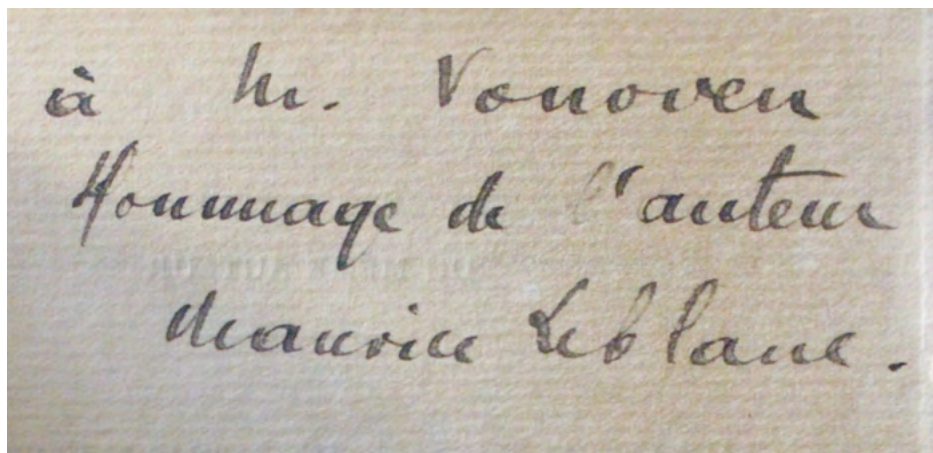 à M. Vonoven
Hommage de l'auteur
Maurice Leblanc.